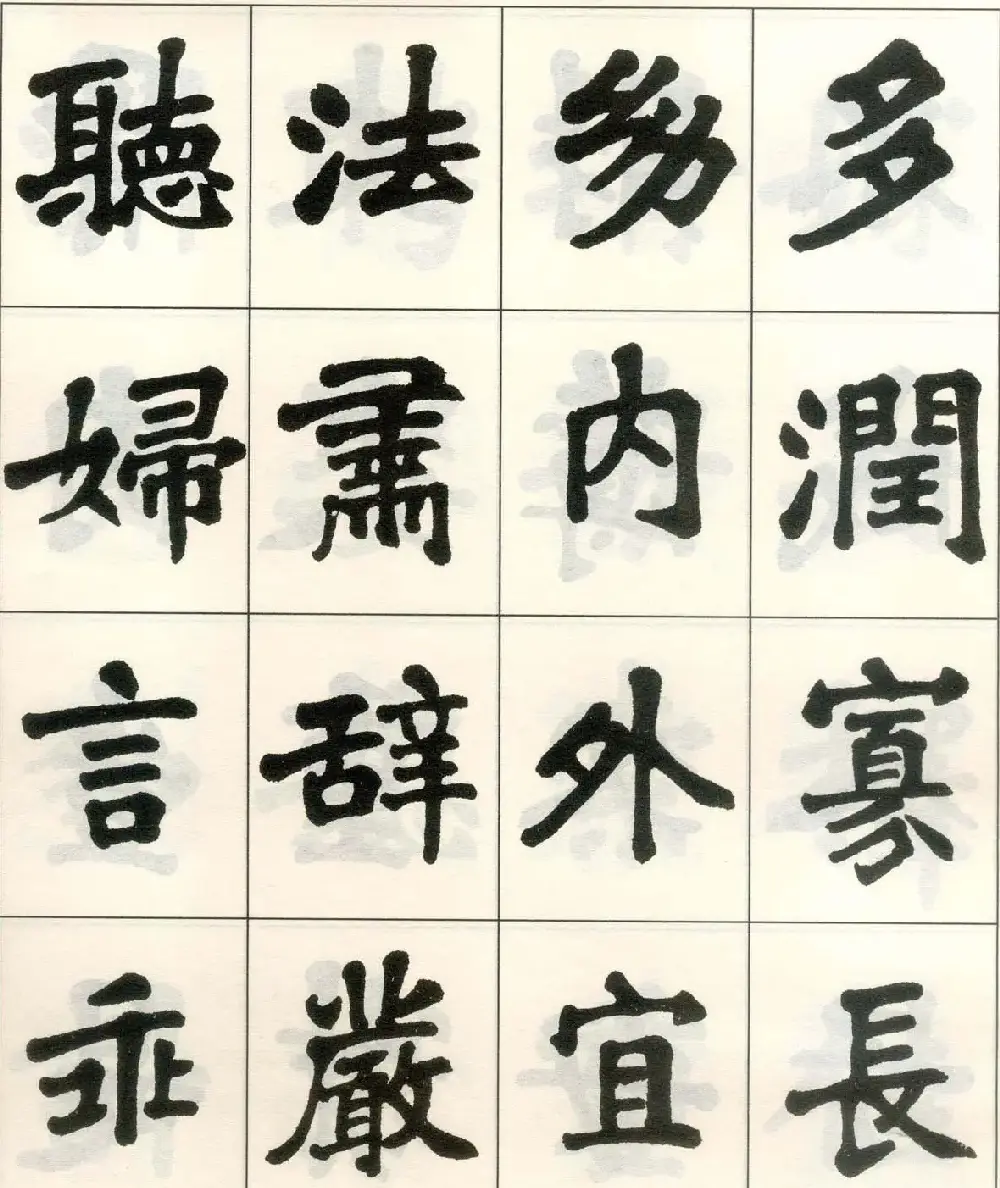 多潤寡長
幼内外宜
法肅辞嚴
聽婦言乖